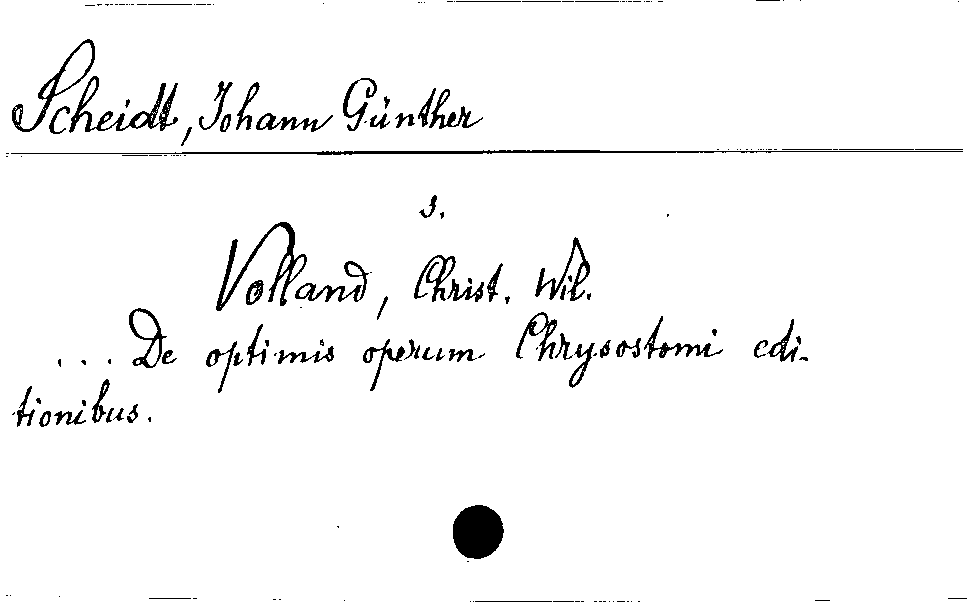 Scheidt, Johann Günther
s.
Volland, Christ. Wil.
... De optimis operum Chrysostomi edi-
tionibus.